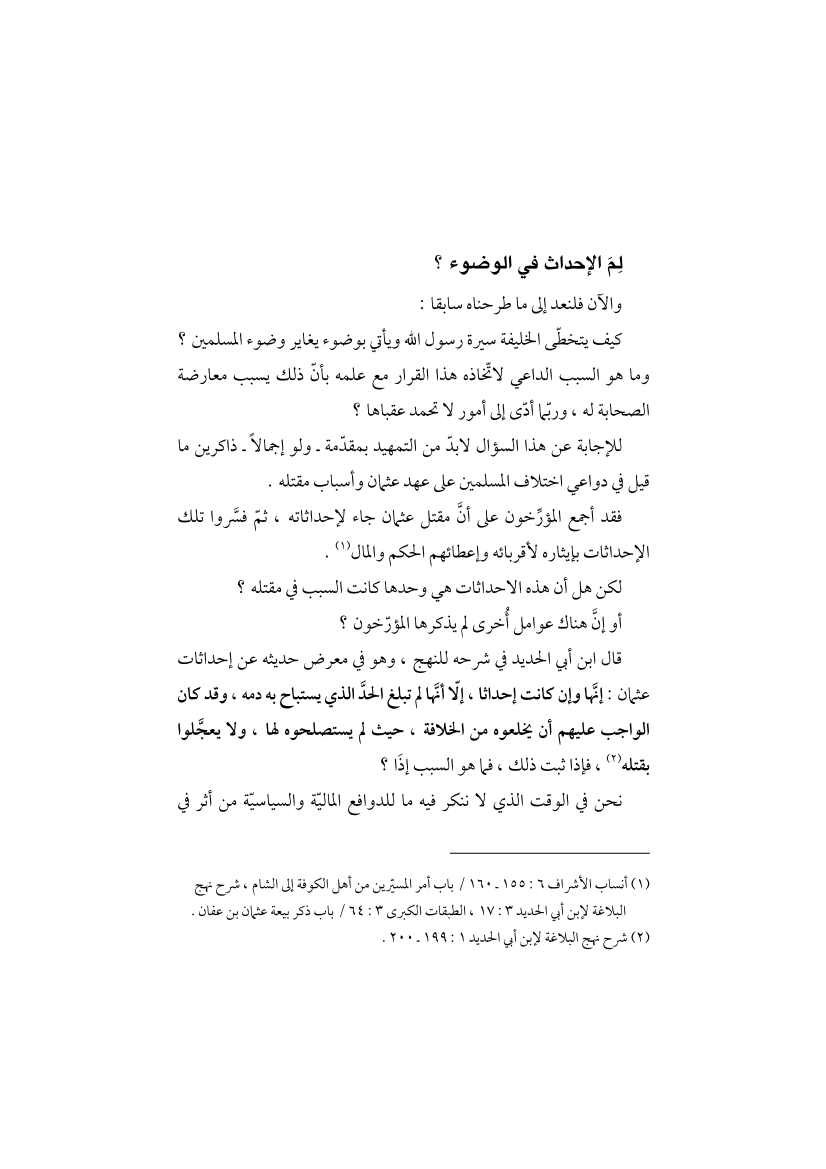 لِمَ الإحداث في الوضوء ؟
والآن فلنعد إلى ما طرحناه سابقا :
كيف يتخطّى الخليفة سيرة رسول الله ويأتي بوضوء يغاير وضوء المسلمين ؟
وما هو السبب الداعي لاتّخاذه هذا القرار مع علمه بأنّ ذلك يسبب معارضة
الصحابة له ، وربّما أدّى إلى أمور لا تحمد عقباها ؟
للإجابة عن هذا السؤال لابدّ من التمهيد بمقدّمة ـ ولو إجمالاً ـ ذاكرين ما
قيل في دواعي اختلاف المسلمين على عهد عثمان وأسباب مقتله .
فقد أجمع المؤرِّخون على أنَّ مقتل عثمان جاء لإحداثاته ، ثمّ فسَّروا تلك
الإحداثات بإيثاره لأقربائه وإعطائهم الحكم والمال(١) .
لكن هل أن هذه الاحداثات هي وحدها كانت السبب في مقتله ؟
أو إنَّ هناك عوامل أُخرى لم يذكرها المؤرّخون ؟
قال ابن أبي الحديد في شرحه للنهج ، وهو في معرض حديثه عن إحداثات
عثمان : إنَّها وإن كانت إحداثا ، إلّا أنَّها لم تبلغ الحدَّ الذي يستباح به دمه ، وقد كان
الواجب عليهم أن يخلعوه من الخلافة ، حيث لم يستصلحوه لها ، ولا يعجَّلوا
بقتله(٢) ، فإذا ثبت ذلك ، فما هو السبب إذَا ؟
نحن في الوقت الذي لا ننكر فيه ما للدوافع الماليّة والسياسيّة من أثر في
(١) أنساب الأشراف ٦ : ١٥٥ ـ ١٦٠ / باب أمر المسيّرين من أهل الكوفة إلى الشام ، شرح نهج
البلاغة لإبن أبي الحديد ٣ : ١٧ ، الطبقات الكبرى ٣ : ٦٤ / باب ذكر بيعة عثمان بن عفان .
(٢) شرح نهج البلاغة لإبن أبي الحديد ١ : ١٩٩ ـ ٢٠٠ .